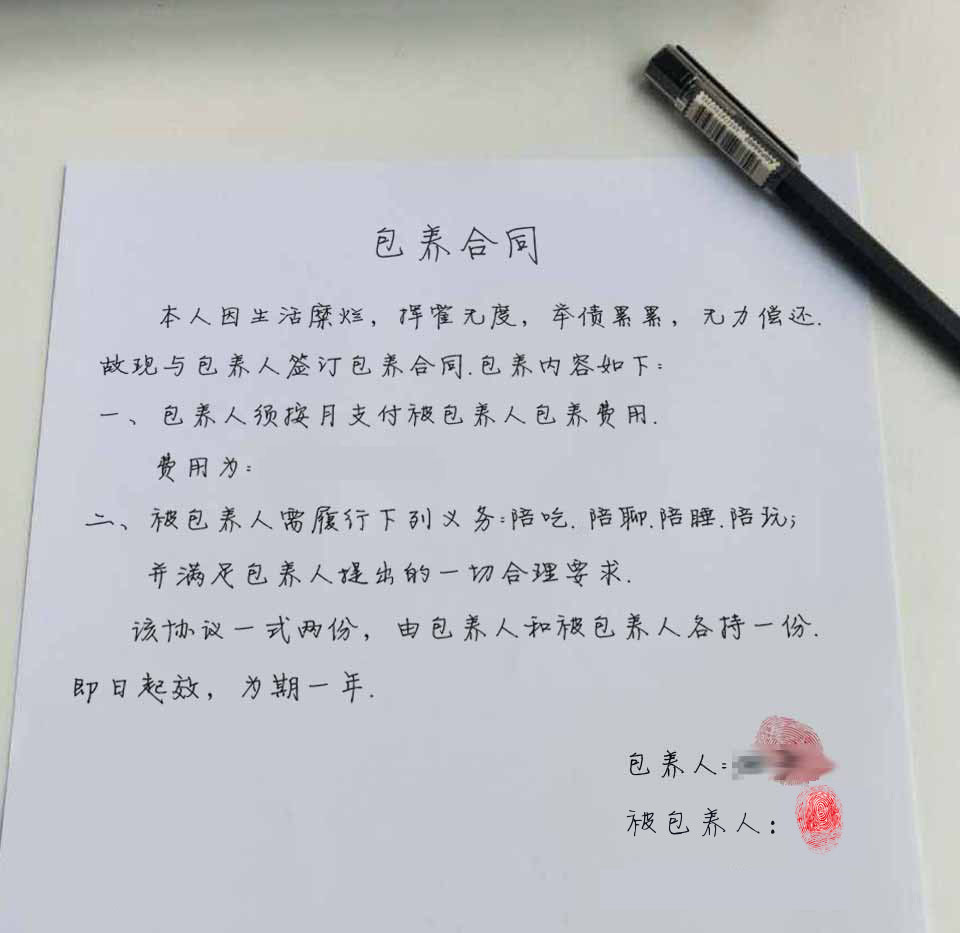 包养合同
本人因生活糜烂，挥霍无度，举债累累，无力偿还.
故现与包养人签订包养合同.包养内容如下：
一、包养人须按月支付被包养人包养费用.
费用为：
二、被包养人需履行下列义务：陪吃.陪聊.陪睡.陪玩；
并满足包养人提出的一切合理要求.
该协议一式两份，由包养人和被包养人各持一份.
即日起效，为期一年.
包养人：
被包养人：